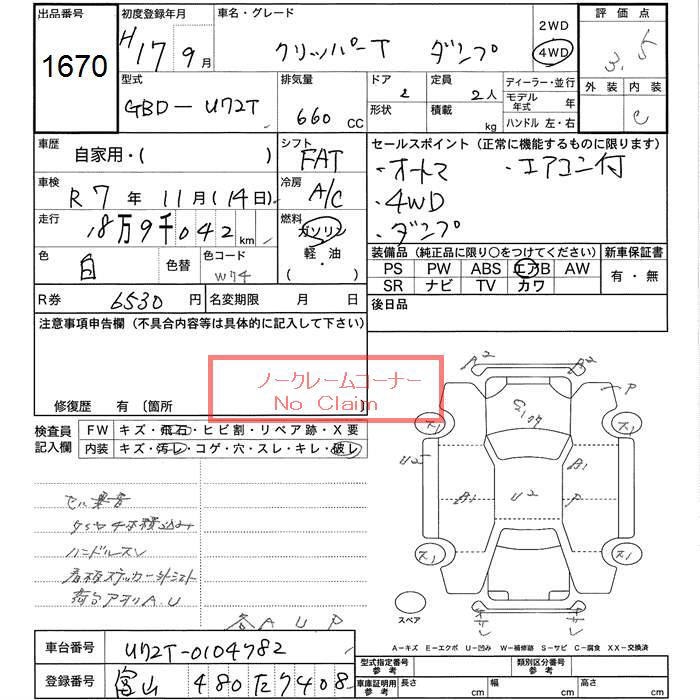 出品番号 初度登録年月 車名・グレード 2WD 評価点
1670 H17 9月 クリッパーT ダンプ 4WD 3.5
型式 排気量 ドア 定員 ディーラー・並行 外装 内装
GBD-U72T 660 CC 2 2人 モデル年式 年 C
形状 積載 kg ハンドル 左・右
車歴 自家用・( ) シフト FAT セールスポイント(正常に機能するものに限ります)
・オートマ ・エアコン付
車検 R7年 11月(14日) 冷房 A/C ・4WD
走行 8万9千042km 燃料 ガソリン ・ダンプ
軽・油
・( )
色 白 色替 色コード W74
装備品(純正品に限り○をつけてください) 新車保証書
PS PW ABS エアB AW 有・無
SR ナビ TV カワ
R券 6530円 名変期限 月 日 後日品
注意事項申告欄(不具合内容等は具体的に記入して下さい)
ノークレームコーナー
No Claim
修復歴 有〔箇所 〕
検査員記入欄 FW キズ・飛石・ヒビ割・リペア跡・X要
内装 キズ・汚レ・コゲ・穴・スレ・キレ・破レ
ハンドルスレ
荷台アオリA.U
各AUP
A2 A2 P
G1
A1 B1 U2 P
スペア
A-キズ E-エクボ U-凹み W-補修跡 S-サビ C-腐食 XX-交換済
車台番号 U72T-0104782
登録番号 富山 480 た 7408
型式指定番号 参考 類別区分番号 参考
車庫証明用 参考 長さ cm 幅 cm 高さ cm